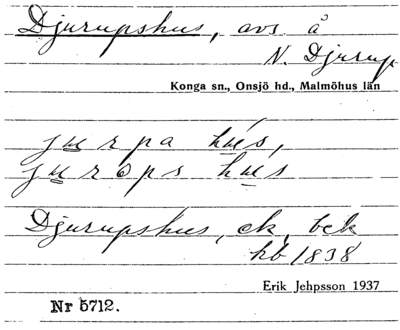 Djurupshus, avs å
N. Djurup
Konga sn., Onsjö hd., Malmöhus län
jurpa hus,
jurops hus
Djurupshus, ck, bck
hb 1838
Erik Jehpsson 1937
Nr 5712.